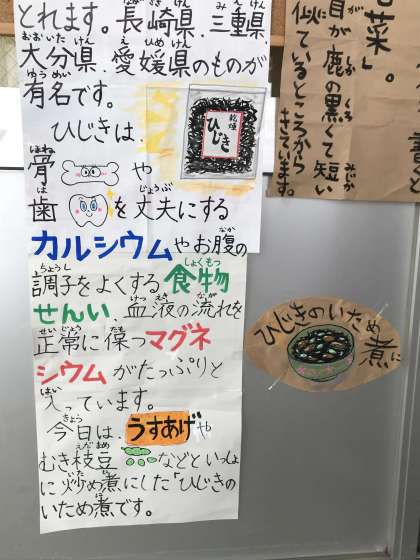 とれます。長崎県、三重県、
大分県、愛媛県のものが
有名です。
ひじきは、
骨や
歯を丈夫にする
カルシウムやお腹の
調子をよくする食物
せんい、血液の流れを
正常に保つマグネ
シウムがたっぷりと
入っています。
今日は、うすあげや
むき枝豆などといっしょ
に炒め煮にした「ひじきの
いため煮です。
乾燥
ひじき
菜」。
目が鹿の黒くて短い
似ているところから
きています。
ひじきのいため煮